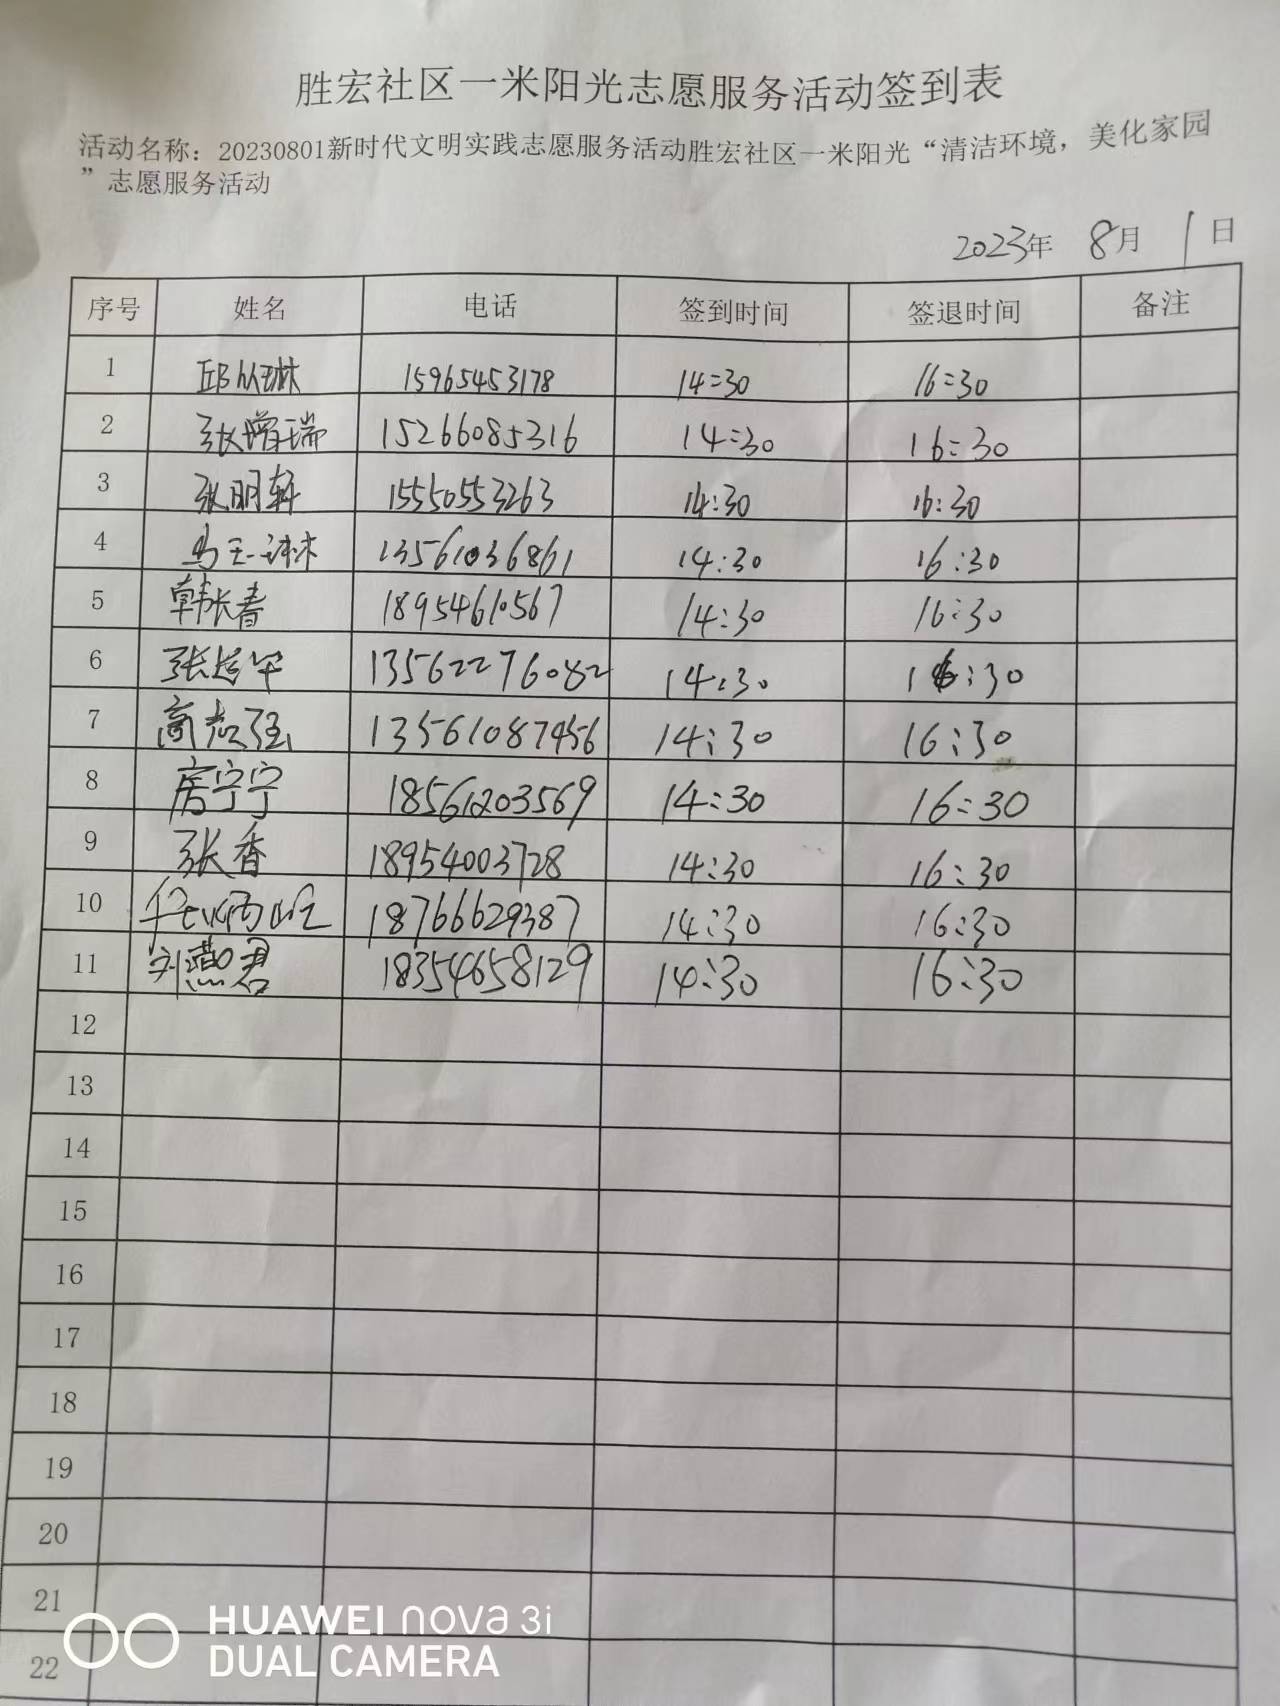 胜宏社区一米阳光志愿服务活动签到表
活动名称：20230801新时代文明实践志愿服务活动胜宏社区一米阳光“清洁环境，美化家园
”志愿服务活动
2023年 8月 1日
序号 姓名 电话 签到时间 签退时间 备注
1 邱从琳 15965453178 14:30 16:30
2 张增瑞 15266085316 14:30 16:30
3 张明轩 15550553263 14:30 16:30
4 马玉琳 13561036861 14:30 16:30
5 韩长春 18954610567 14:30 16:30
6 张 13562276082 14:30 16:30
7 高志强 13561087456 14:30 16:30
8 房宁宁 18561203569 14:30 16:30
9 张香 18954003728 14:30 16:30
10 18766629387 14:30 16:30
11 刘燕君 18354658129 14:30 16:30
12
13
14
15
16
17
18
19
20
21
22
HUAWEI nova 3i
DUAL CAMERA